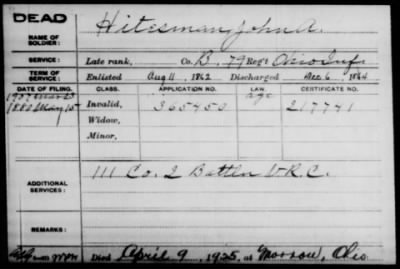 DEAD
NAME OF SOLDIER: Hitesman, John A.
SERVICE: Late rank, Co. B, 79 Reg't Ohio Inf.
TERM OF SERVICE: Enlisted Aug 11, 1862 Discharged Dec. 6, 1864
DATE OF FILING. CLASS. APPLICATION NO. LAW. CERTIFICATE NO.
1907 Mar 23 age
1880 May 15 Invalid, 365450 217741
Widow,
Minor,
ADDITIONAL SERVICES: 111 Co. 2 Battln V.R.C.
REMARKS:
Died April 9, 1925, at Morrow, Ohio